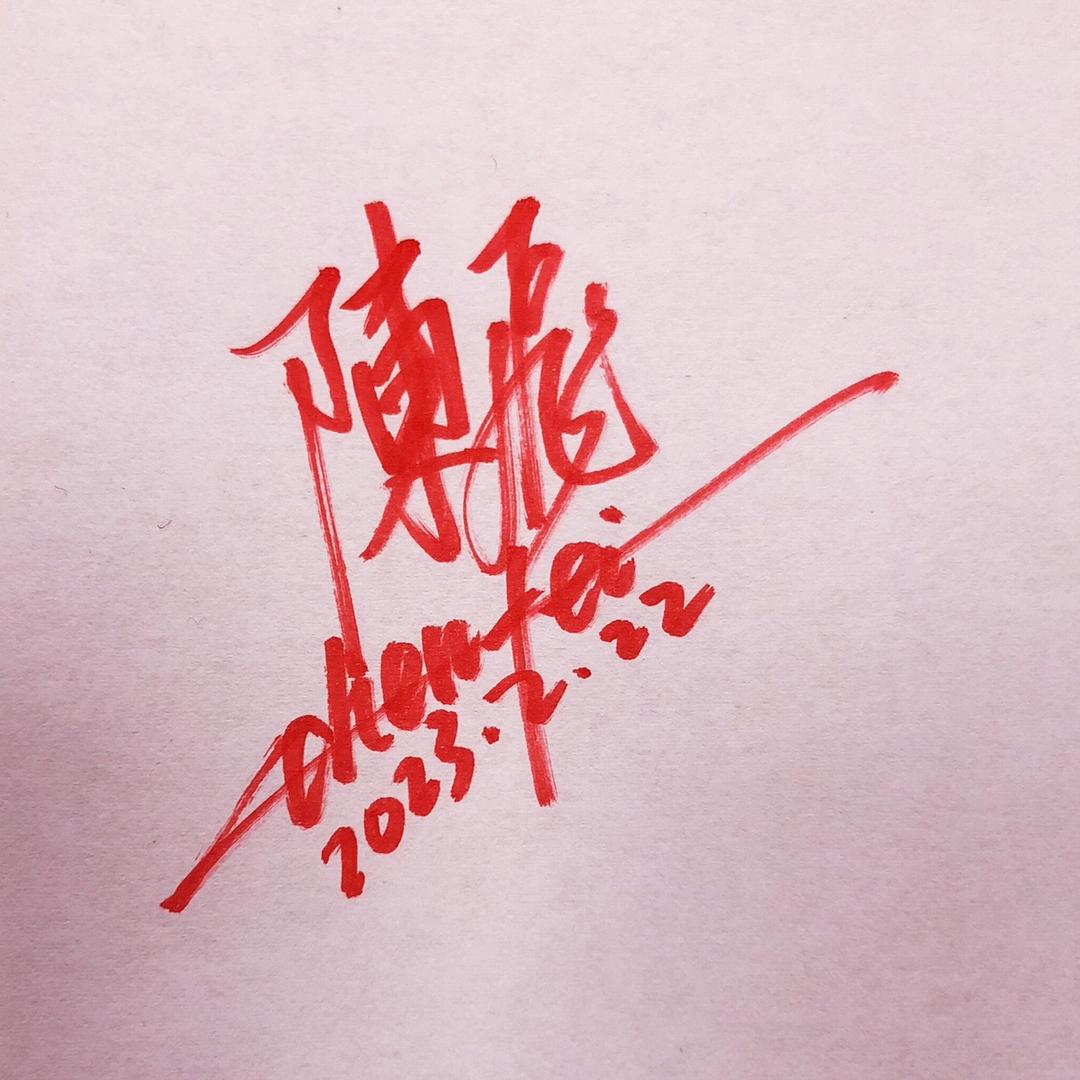 陳飛
chenfei
2023.2.22